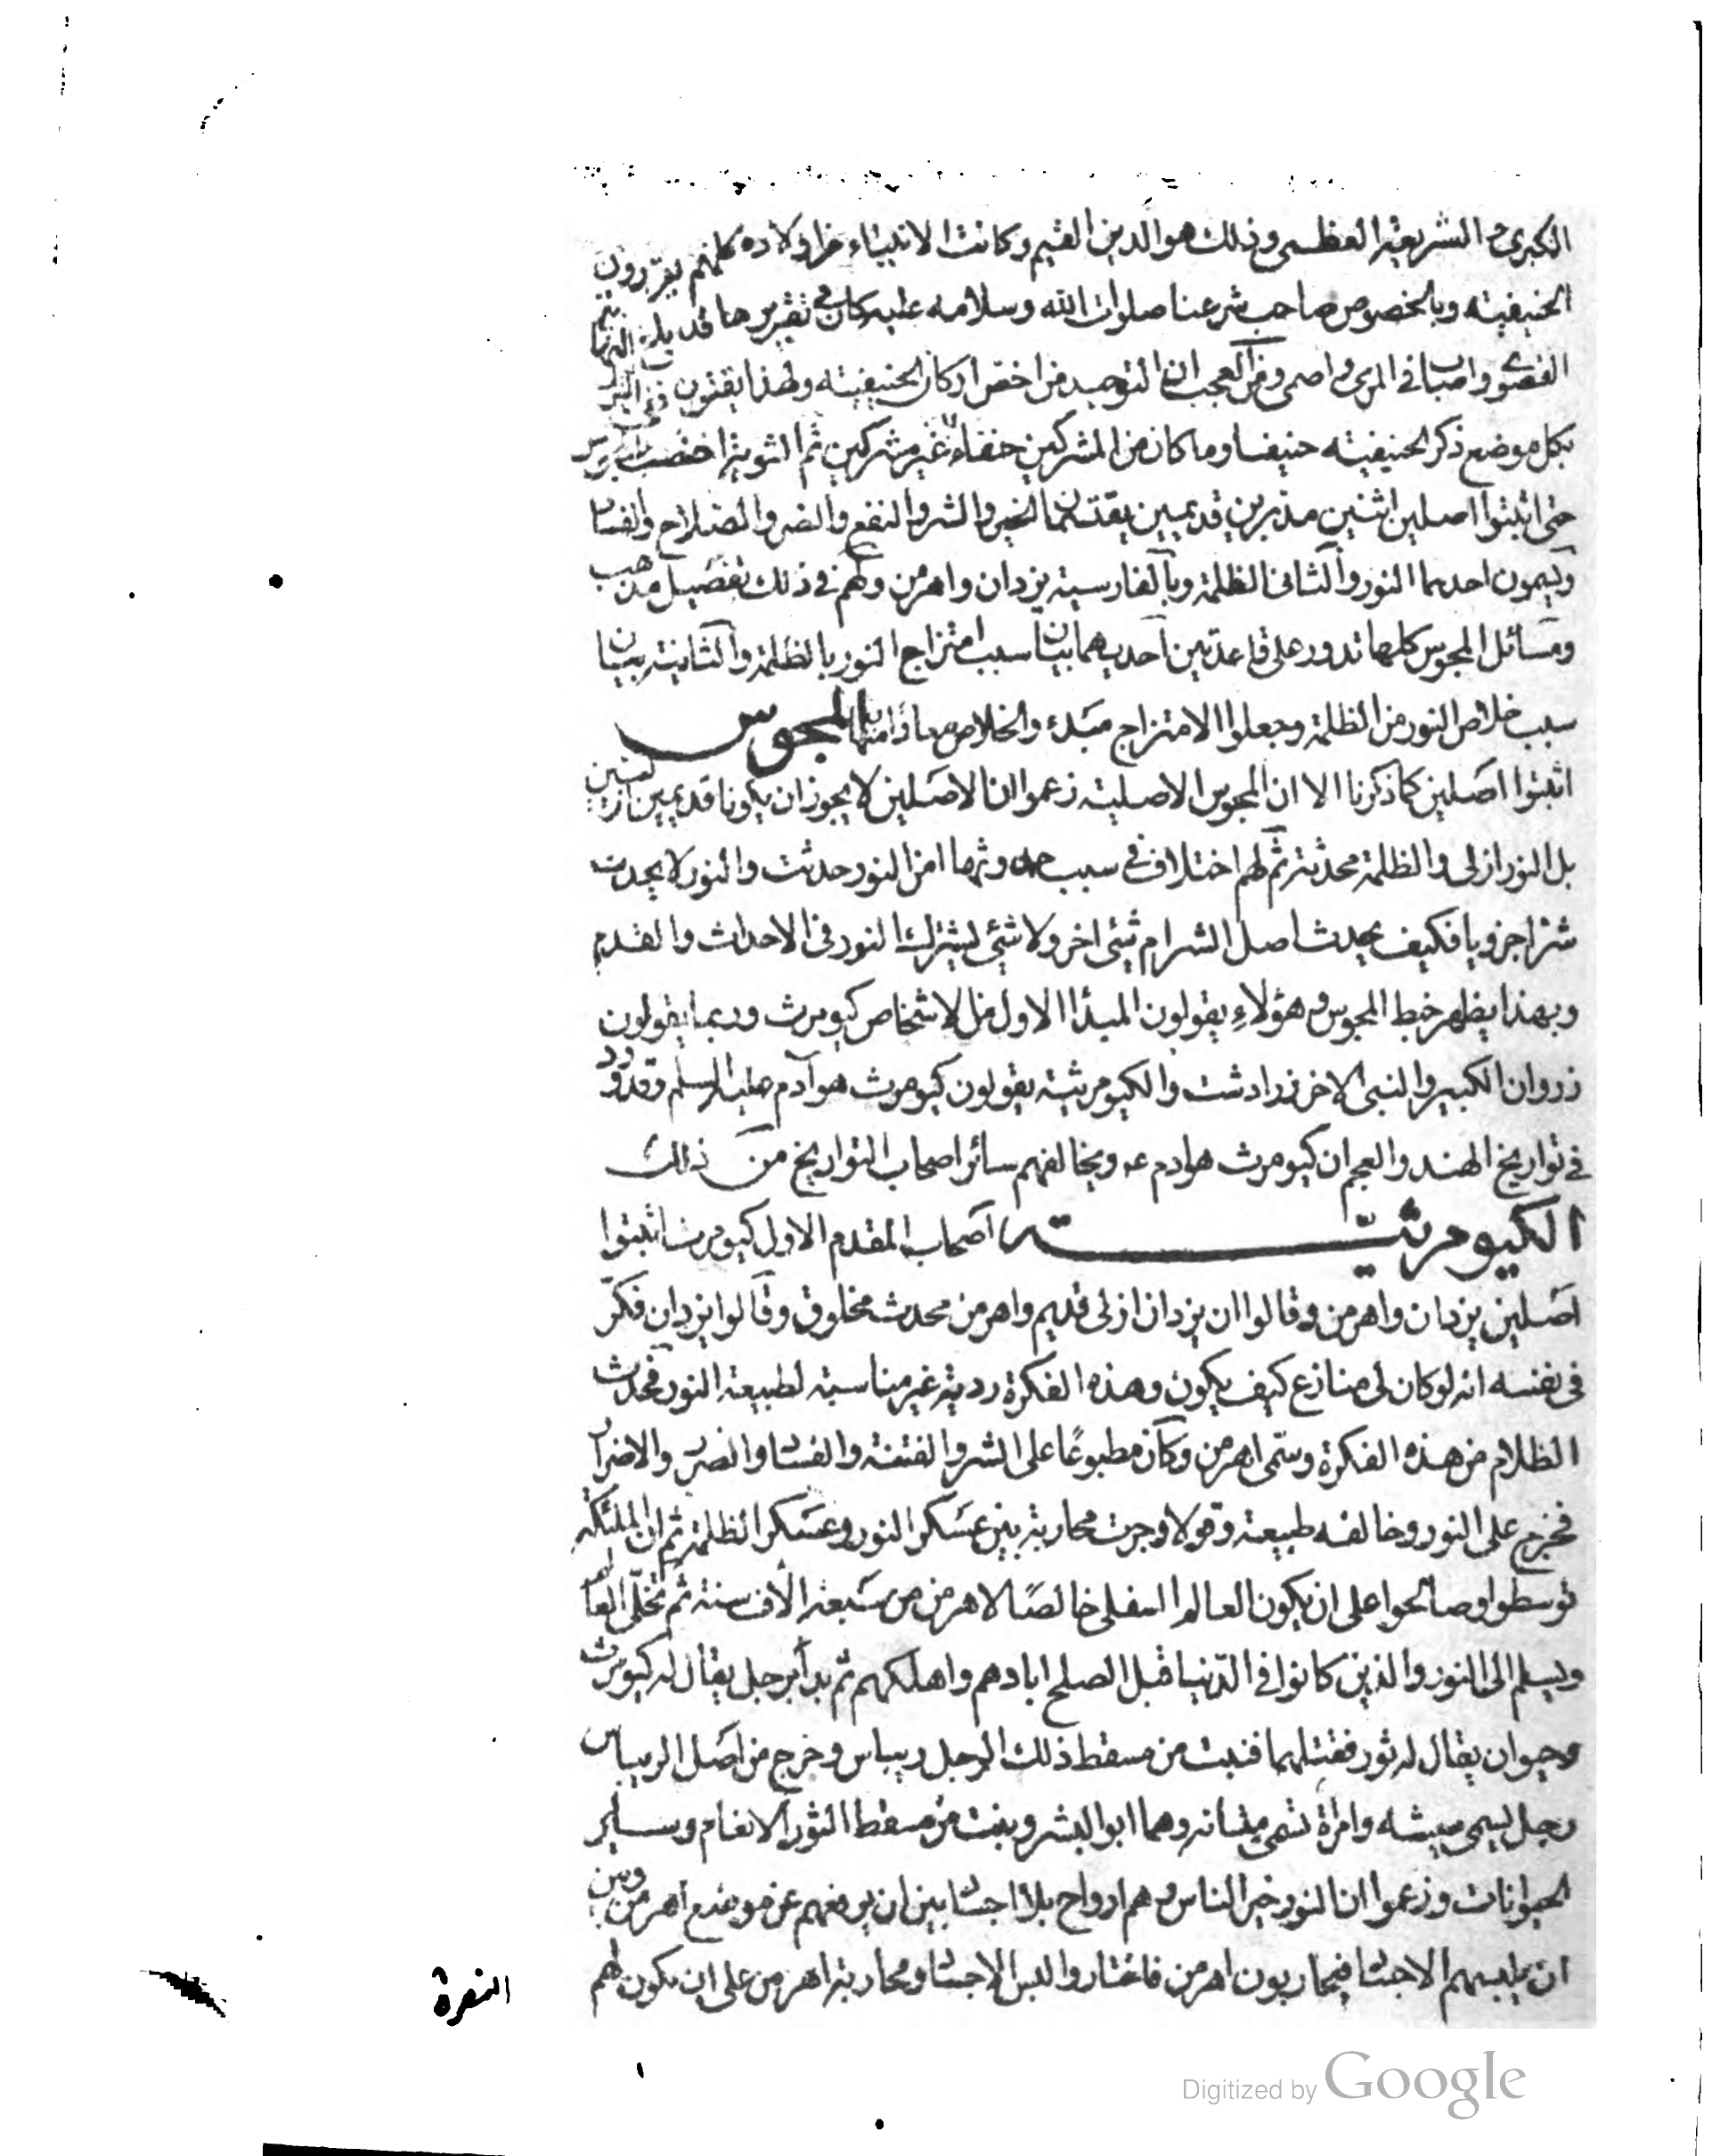 الكبرى و الشريعة العظمى وذلك هو الدين القيم وكانت الانبياء من اولاده كلهم يقررون
الحنيفية وبالخصوص صاحب شرعنا صلوات الله وسلامه عليه كان في تقريرها قد بلغ النهاية
القصوى واصاب في المرمى واصمى ومن العجب ان التوحيد من اخص اركان الحنيفية ولهذا يقترن نفى الشرك
بكل موضع ذكر الحنيفية حنيفا وما كان من المشركين حنفاء غير مشركين ثم الثنوية اختصت بالمجوس
حتى اثبتوا اصلين اثنين مدبرين قديمين يقتسمان الخير والشر والنفع والضر والصلاح والفساد
ويسمون احدهما النور والثاني الظلمة وبالفارسية يزدان واهرمن ولهم في ذلك تفصيل مذهب
ومسائل المجوس كلها تدور على قاعدتين احديهما بيان سبب امتزاج النور بالظلمة والثانية بيان
سبب خلاص النور من الظلمة وجعلوا الامتزاج مبدء والخلاص معادا المجوس
اثبتوا اصلين كما ذكرنا الا ان المجوس الاصلية زعموا ان الاصلين لا يجوز ان يكونا قديمين ازليين
بل النور ازلى والظلمة محدثة ثم لهم اختلاف في سبب حدوثها امن النور حدثت والنور لا يحدث
شرا جزويا فكيف يحدث اصل الشر ام شئ اخر ولا شئ يشترك النور في الاحداث والقدم
وبهذا يظهر خبط المجوس وهؤلاء يقولون المبدا الاول من الاشخاص كيومرث وربما يقولون
زروان الكبير والنبى الاخر زرادشت والكيومرثية يقولون كيومرث هو آدم عليه السلم وقد ورد
في تواريخ الهند والعجم ان كيومرث هو ادم عم ويخالفهم سائر اصحاب التواريخ من ذلك
الكيومرثية اصحاب المقدم الاول كيومرث اثبتوا
اصلين يزدان واهرمن وقالوا ان يزدان ازلى قديم واهرمن محدث مخلوق وقالوا يزدان فكر
في نفسه انه لو كان لى منازع كيف يكون وهذه الفكرة ردية غير مناسبة لطبيعة النور فحدث
الظلام من هذه الفكرة وسمى اهرمن وكان مطبوعا على الشر والفتنة والفساد والضرر والاضرار
فخرج على النور وخالفه طبيعة وقولا وجرت محاربة بين عسكر النور وعسكر الظلمة ثم ان الملئكة
توسطوا وصالحوا على ان يكون العالم السفلى خالصا لاهرمن من سبعة الاف سنة ثم تخلى العالم
ويسلم الى النور والذين كانوا في الدنيا قبل الصلح ابادهم واهلكهم ثم بدأ برجل يقال له كيومرث
وحيوان يقال له ثور فقتلهما فنبت من مسقط ذلك الرجل ريباس وخرج من اصل الريباس
رجل يسمى ميشه وامراة تسمى ميشانه وهما ابوا البشر ونبت من مسقط الثور الانعام وسائر
الحيوانات وزعموا ان النور خير الناس وهم ارواح بلا اجساد بين ان يرفعهم عن موضع اهرمن وبين
ان يلبسهم الاجساد فيحاربون اهرمن فاختاروا لبس الاجساد ومحاربة اهرمن على ان يكون لهم
النصرة
Digitized by Google